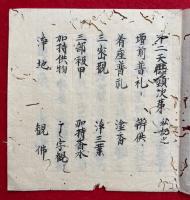 二天頭次第
壇前普礼 辨供
着座普礼 塗香
三密観 浄三業
三部被甲 加持香水
加持供物 字観
浄地 観佛